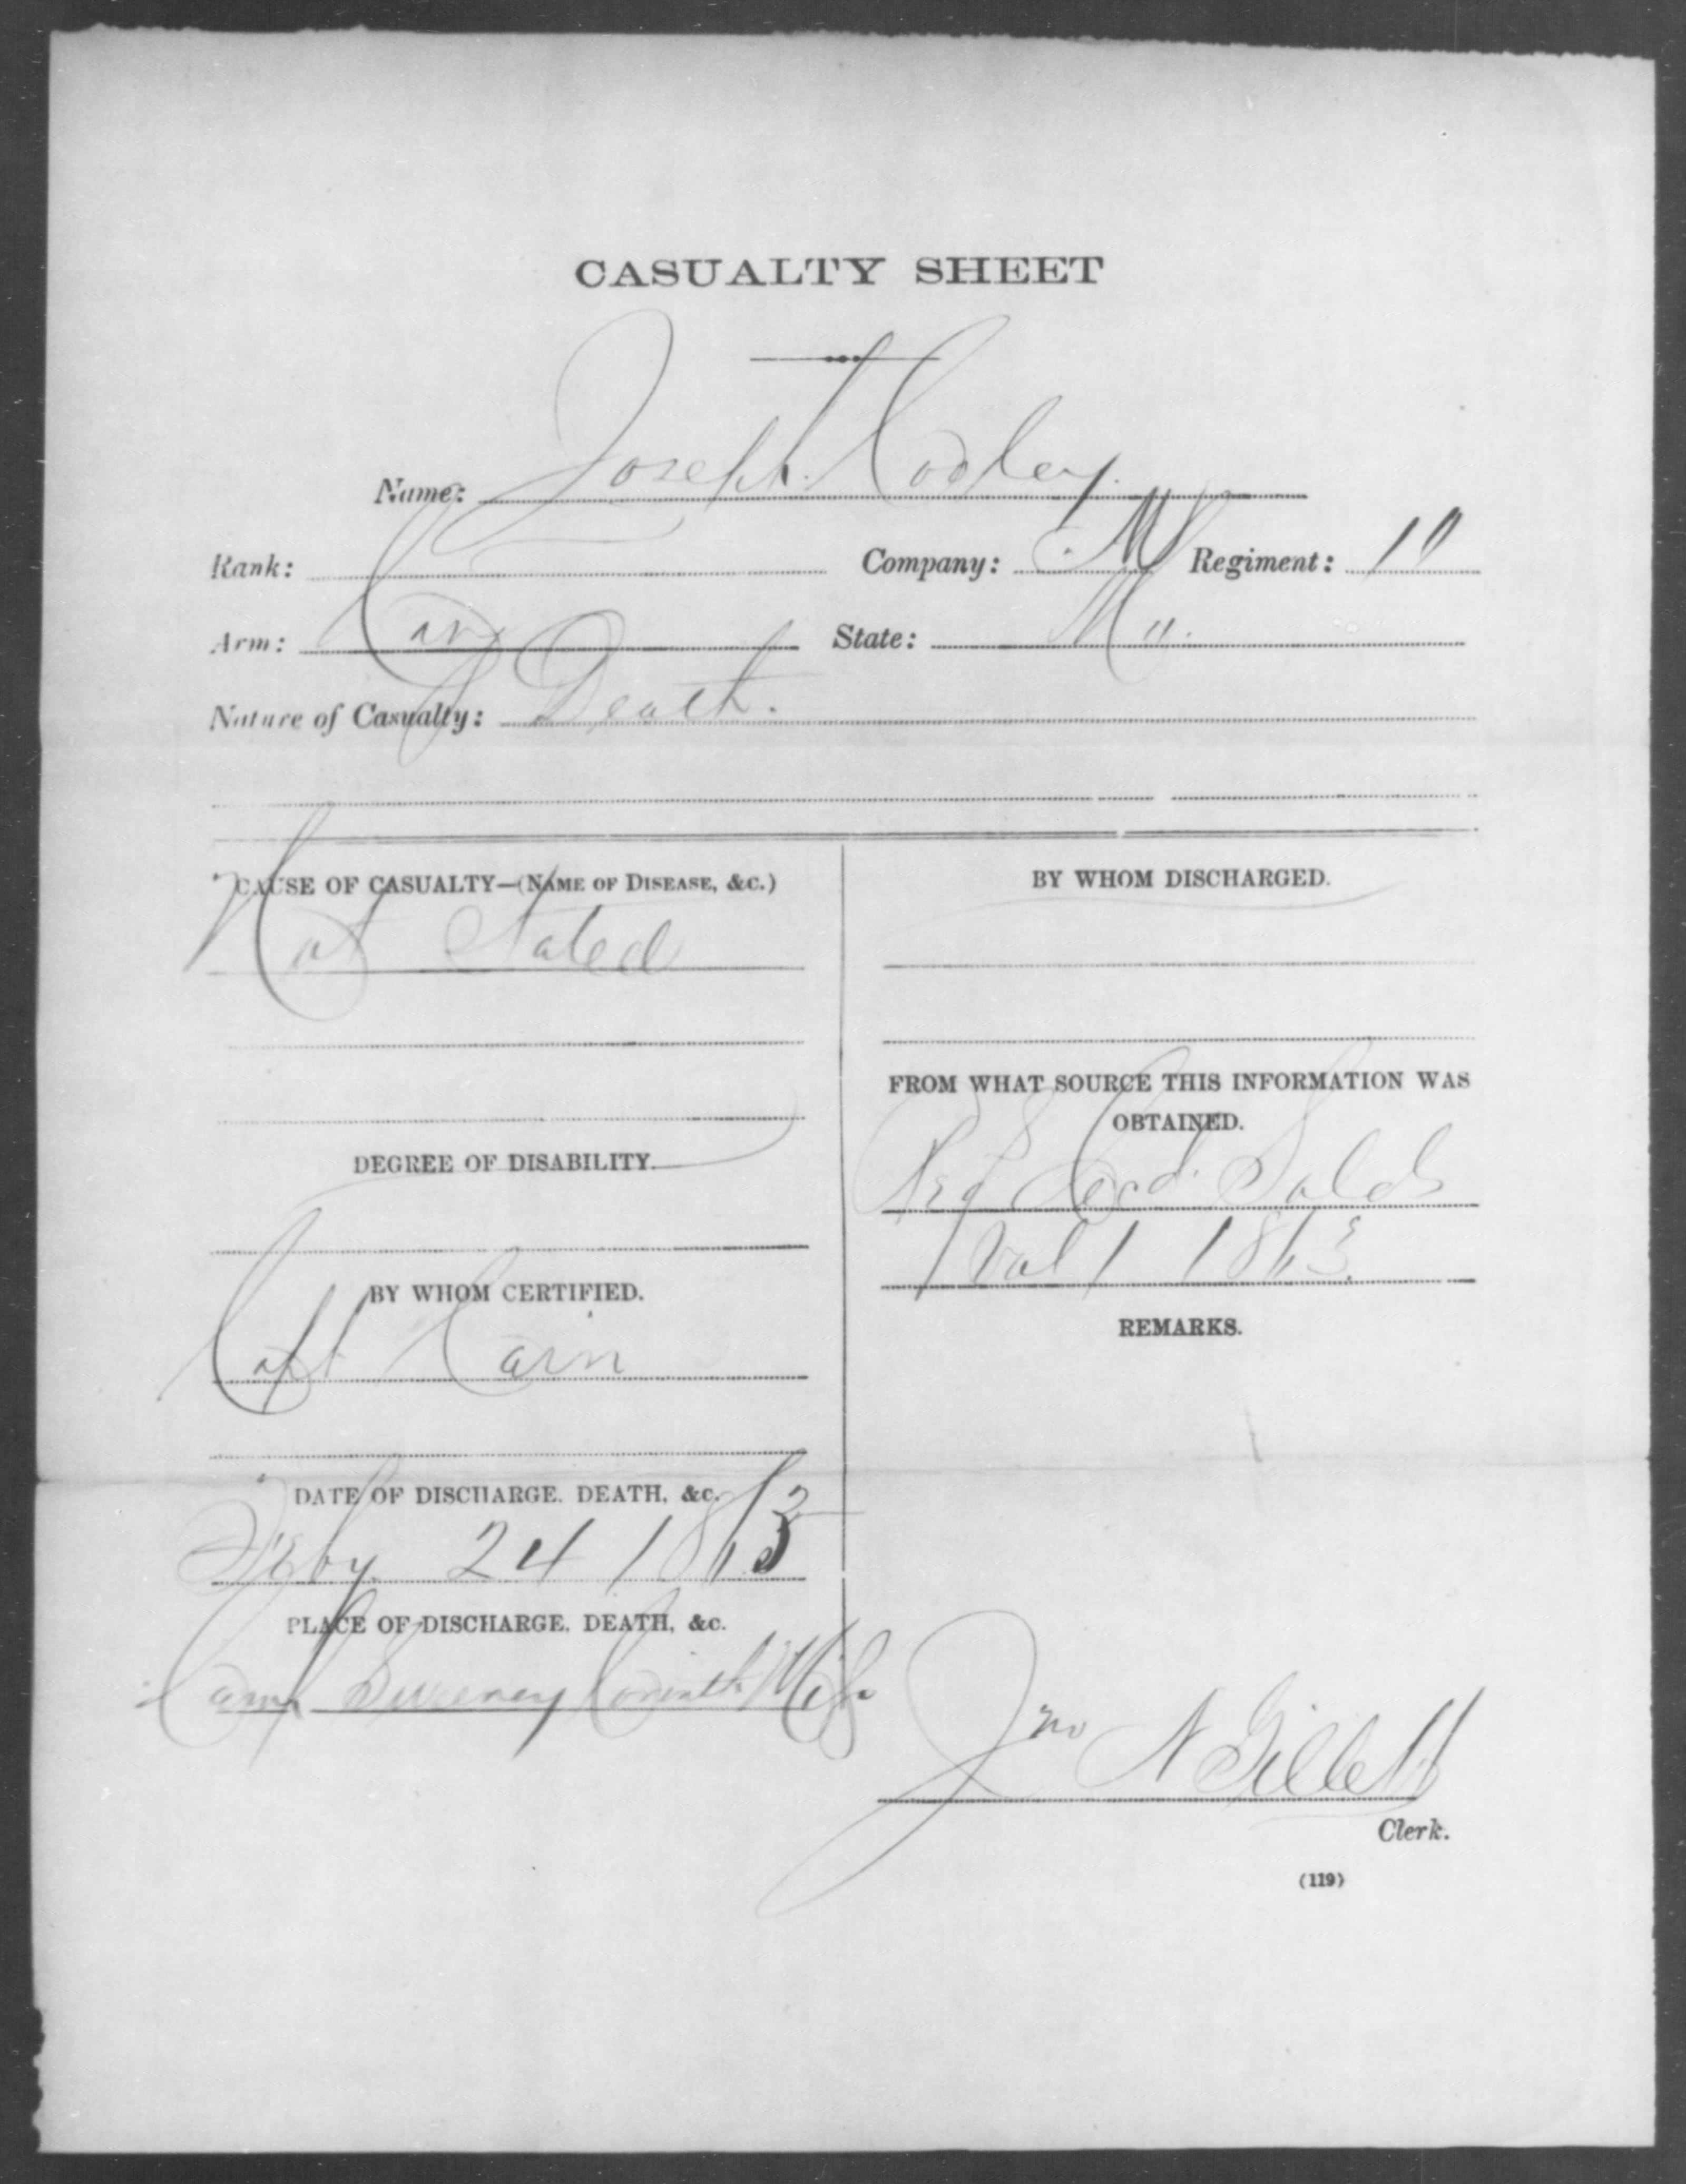 CASUALTY SHEET
Name: Joseph Cooley.
Rank: Company: M Regiment: 10
Arm: Cav State: Mo.
Nature of Casualty: Death.
CAUSE OF CASUALTY—(NAME OF DISEASE, &c.)
Not Stated
DEGREE OF DISABILITY.
BY WHOM CERTIFIED.
Capt Cain
DATE OF DISCHARGE. DEATH, &c.
Feby. 24 1863
PLACE OF DISCHARGE. DEATH, &c.
Camp Sweeney Corinth Miss
BY WHOM DISCHARGED.
FROM WHAT SOURCE THIS INFORMATION WAS
OBTAINED.
Reg Decd. Solds
Vol 1 1863.
REMARKS.
Jno N Gillett
Clerk.
(119)